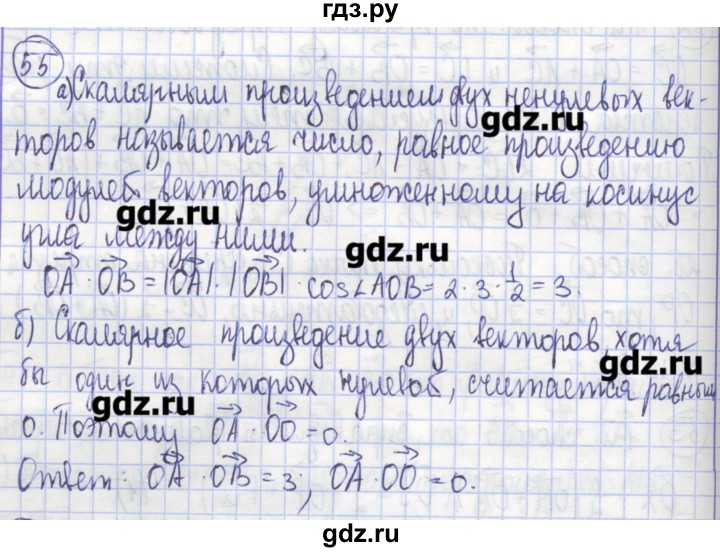 гдз.ру
55
а) Скалярным произведением двух ненулевых век-
gdz.ru
торов называется число, равное произведению
модулей векторов, умноженному на косинус
gdz.ru
угла между ними.
gdz.ru
OA · OB = |OA| · |OB| · cos∠AOB = 2 · 3 · 1/2 = 3.
б) Скалярное произведение двух векторов, хотя
бы один из которых нулевой, считается равным
gdz.ru
0. Поэтому OA · OO = 0.
Ответ: OA · OB = 3; OA · OO = 0.
gdz.ru